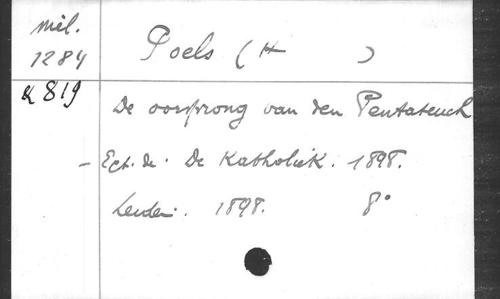 mél.
1284
Poels (H )
K 819
De oorsprong van den Pentateuch
- Ext. de. De Katholiek. 1898.
Leiden. 1898. 8°